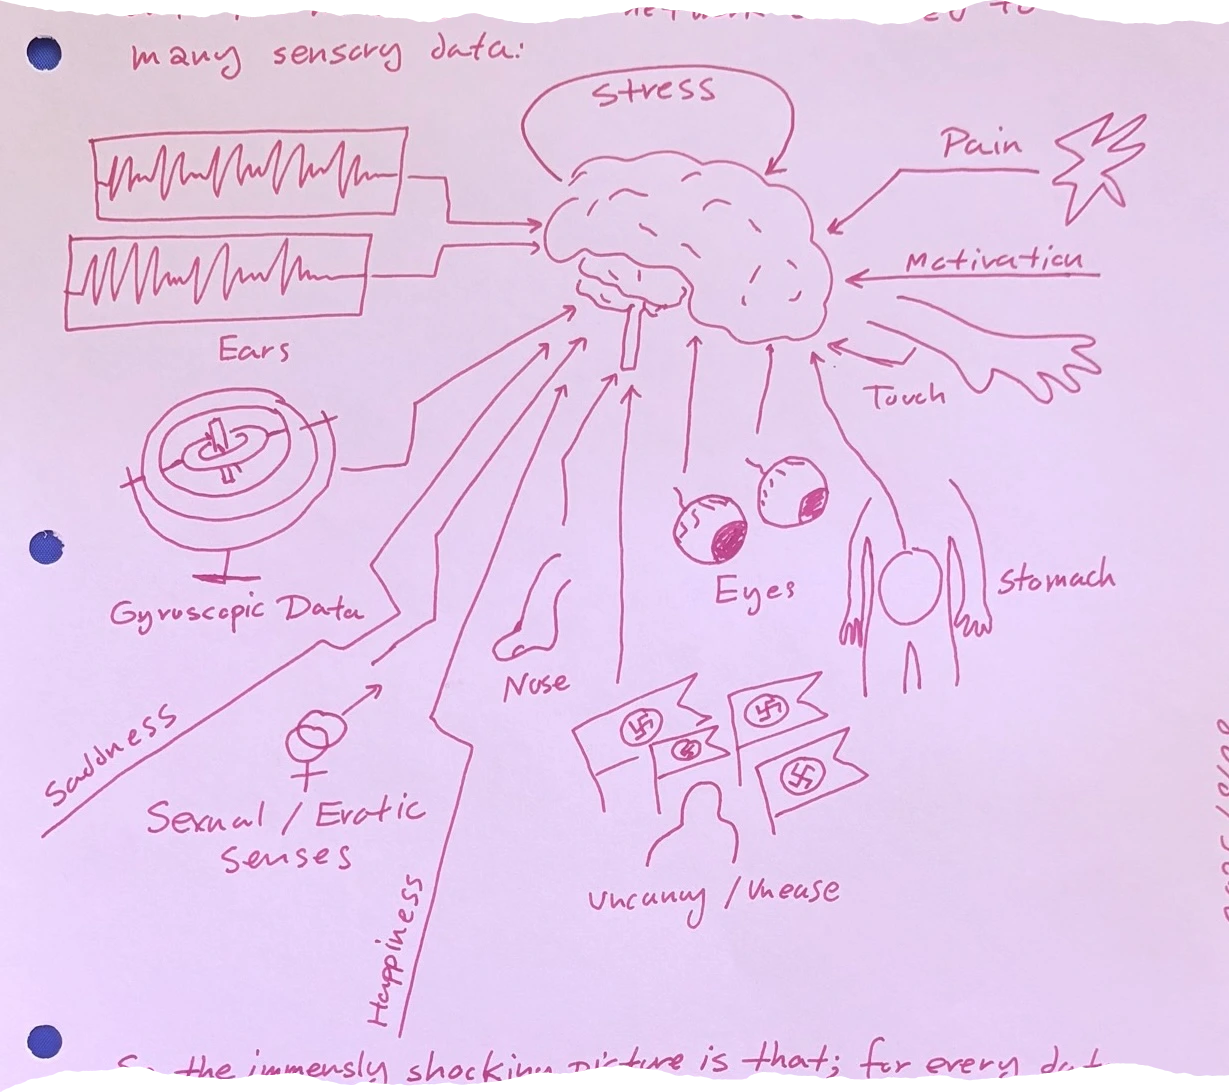 many sensory data:
Stress
Pain
Motivation
Ears
Touch
Gyroscopic Data
Eyes
Stomach
Nose
Saddness
Sexual / Erotic
Senses
Uncanny / Unease
Happiness
So the immensly shocking picture is that; for every dat